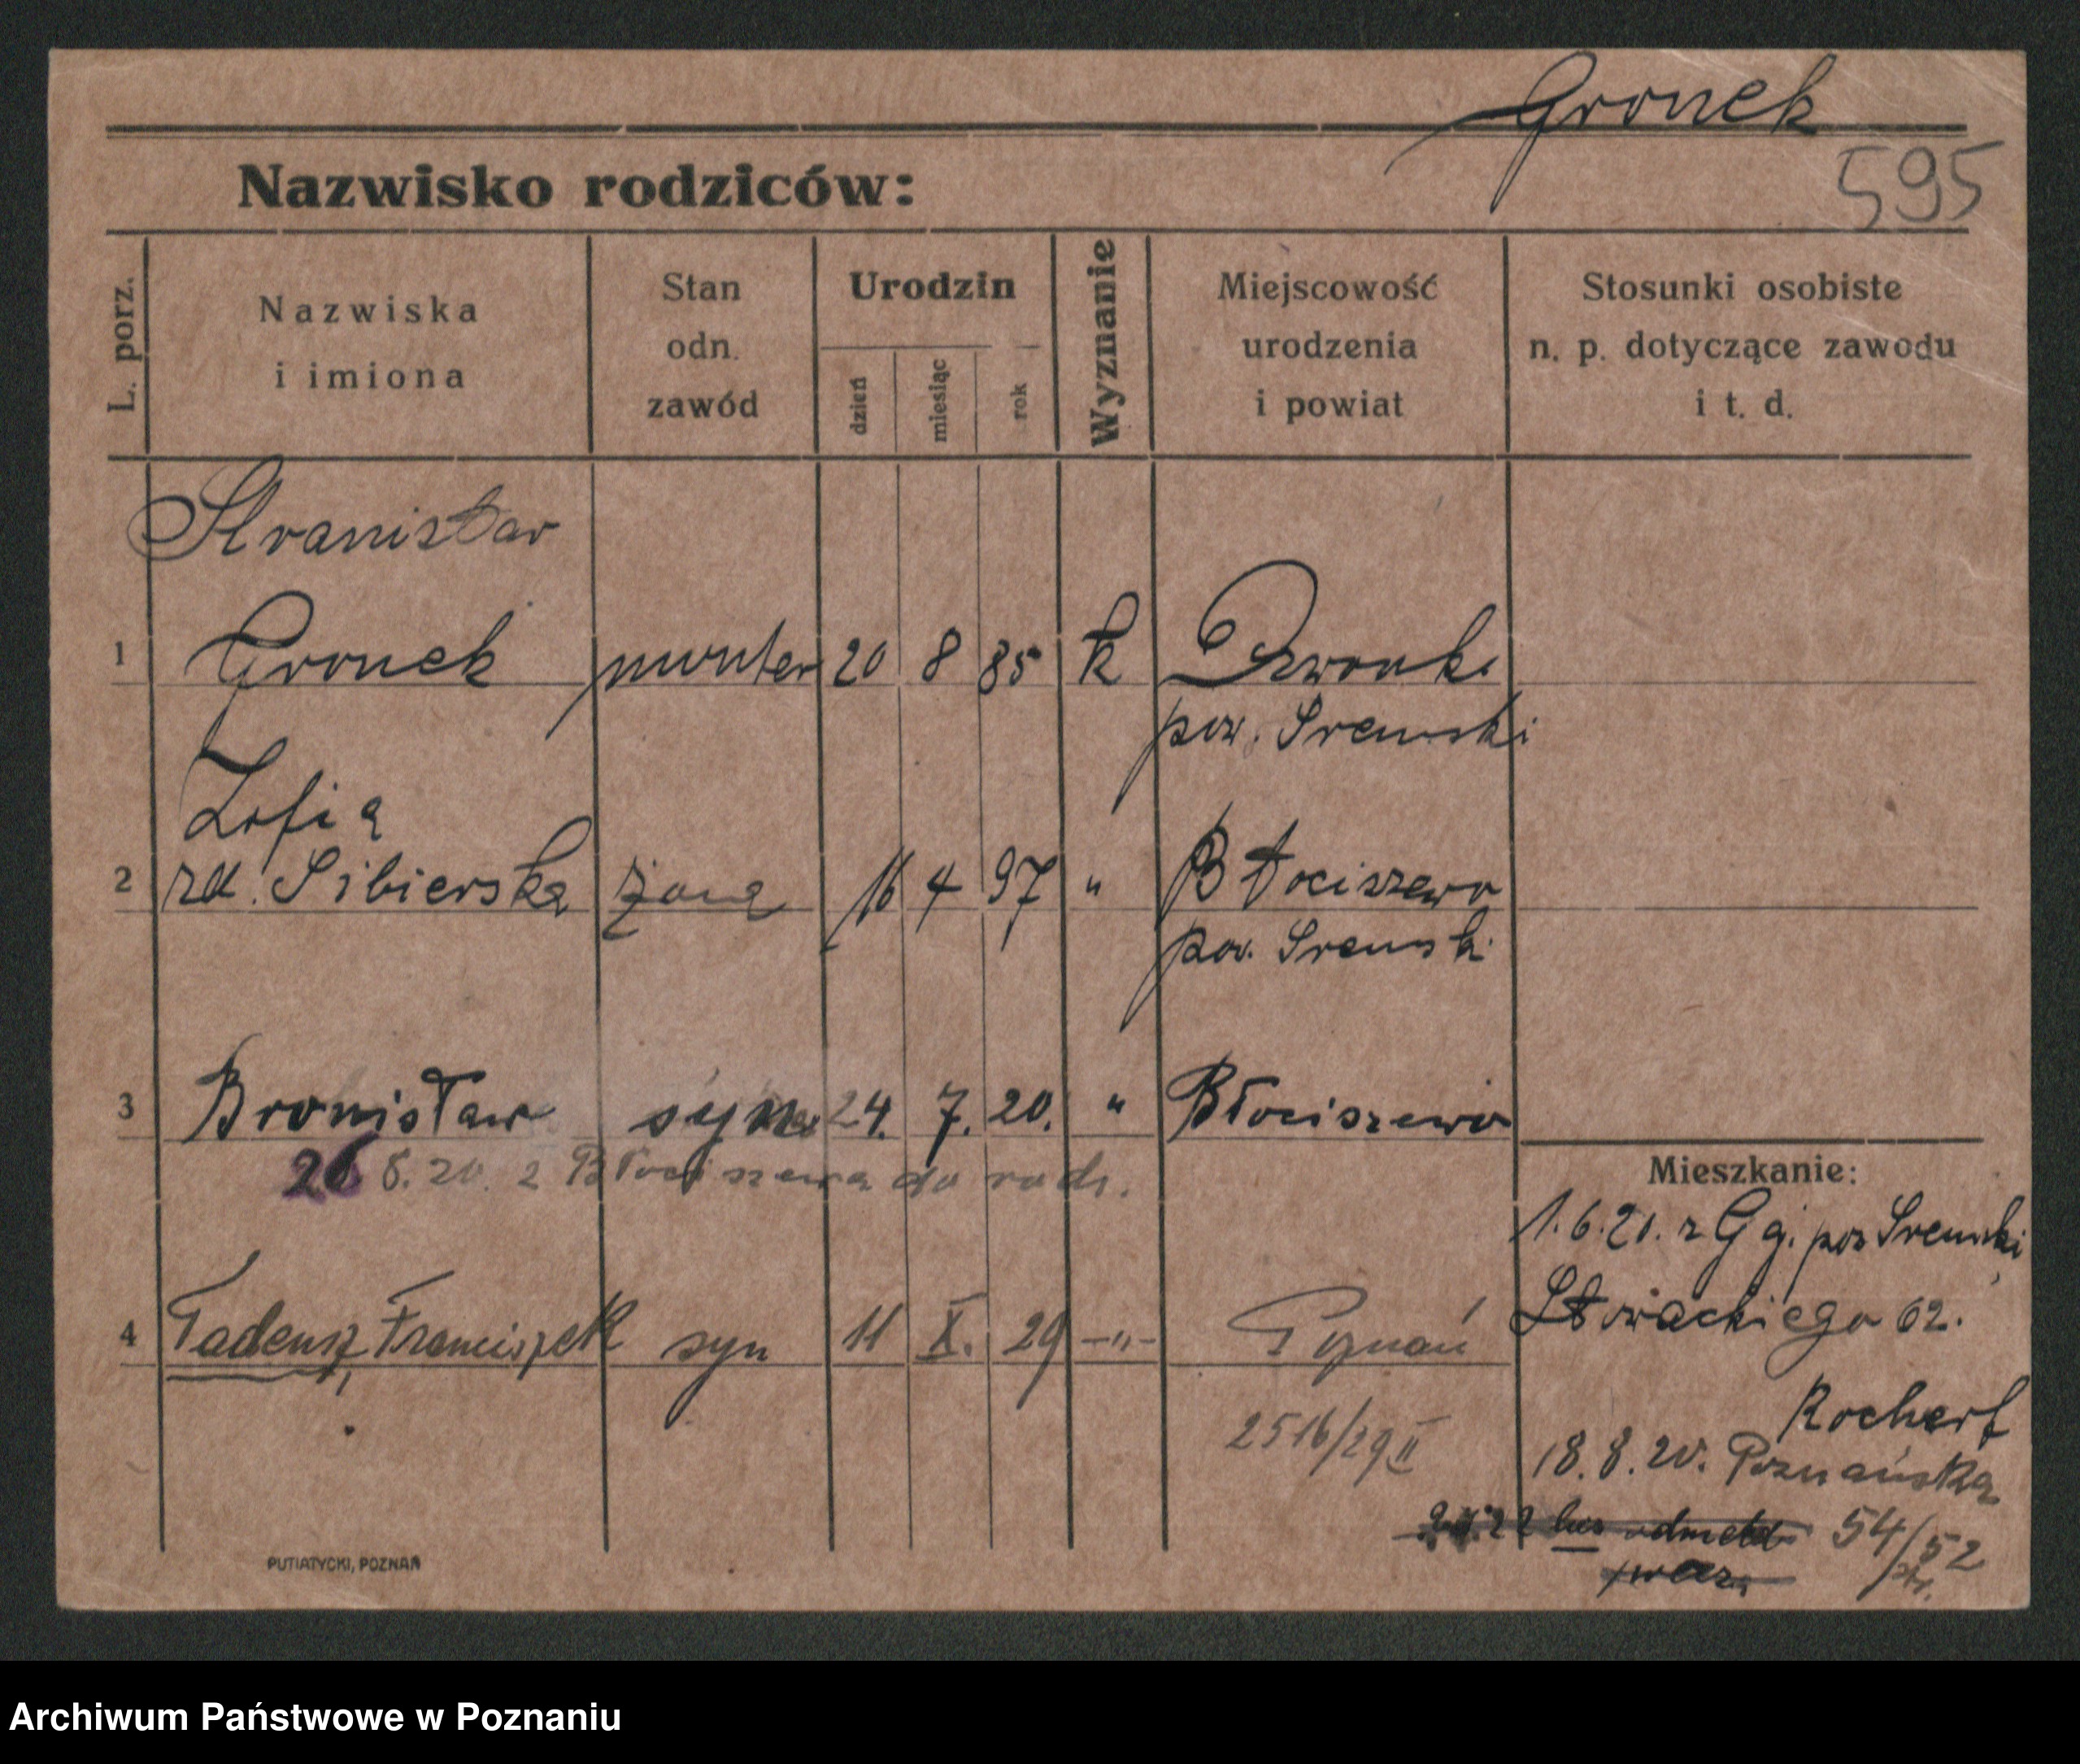 Gronek
595
Nazwisko rodziców:
L. porz.
Nazwiska
i imiona
Stan
odn.
zawód
Urodzin
dzień
miesiąc
rok
Wyznanie
Miejscowość
urodzenia
i powiat
Stosunki osobiste
n. p. dotyczące zawodu
i t. d.
Stanisław
1 Gronek monter 20 8 85 k Dzwonki
pow. Sremski
Zofia
2 rd. Sibierska żona 16 4 97 " Błociszewo
pow. Sremski
3 Bronisław syn 24. 7. 20. " Błociszewo
26 8. 20. z Błociszewa do rodz.
Mieszkanie:
1.6.20. z pow Sremski
Słowackiego 62.
4 Tadeusz, Franciszek syn 11 X. 29 -"- Poznań
2516/29 II
Rochert
18.8.20. Poznańska
54/52
ptr.
22 bez odmeld
PUTIATYCKI, POZNAŃ
Archiwum Państwowe w Poznaniu